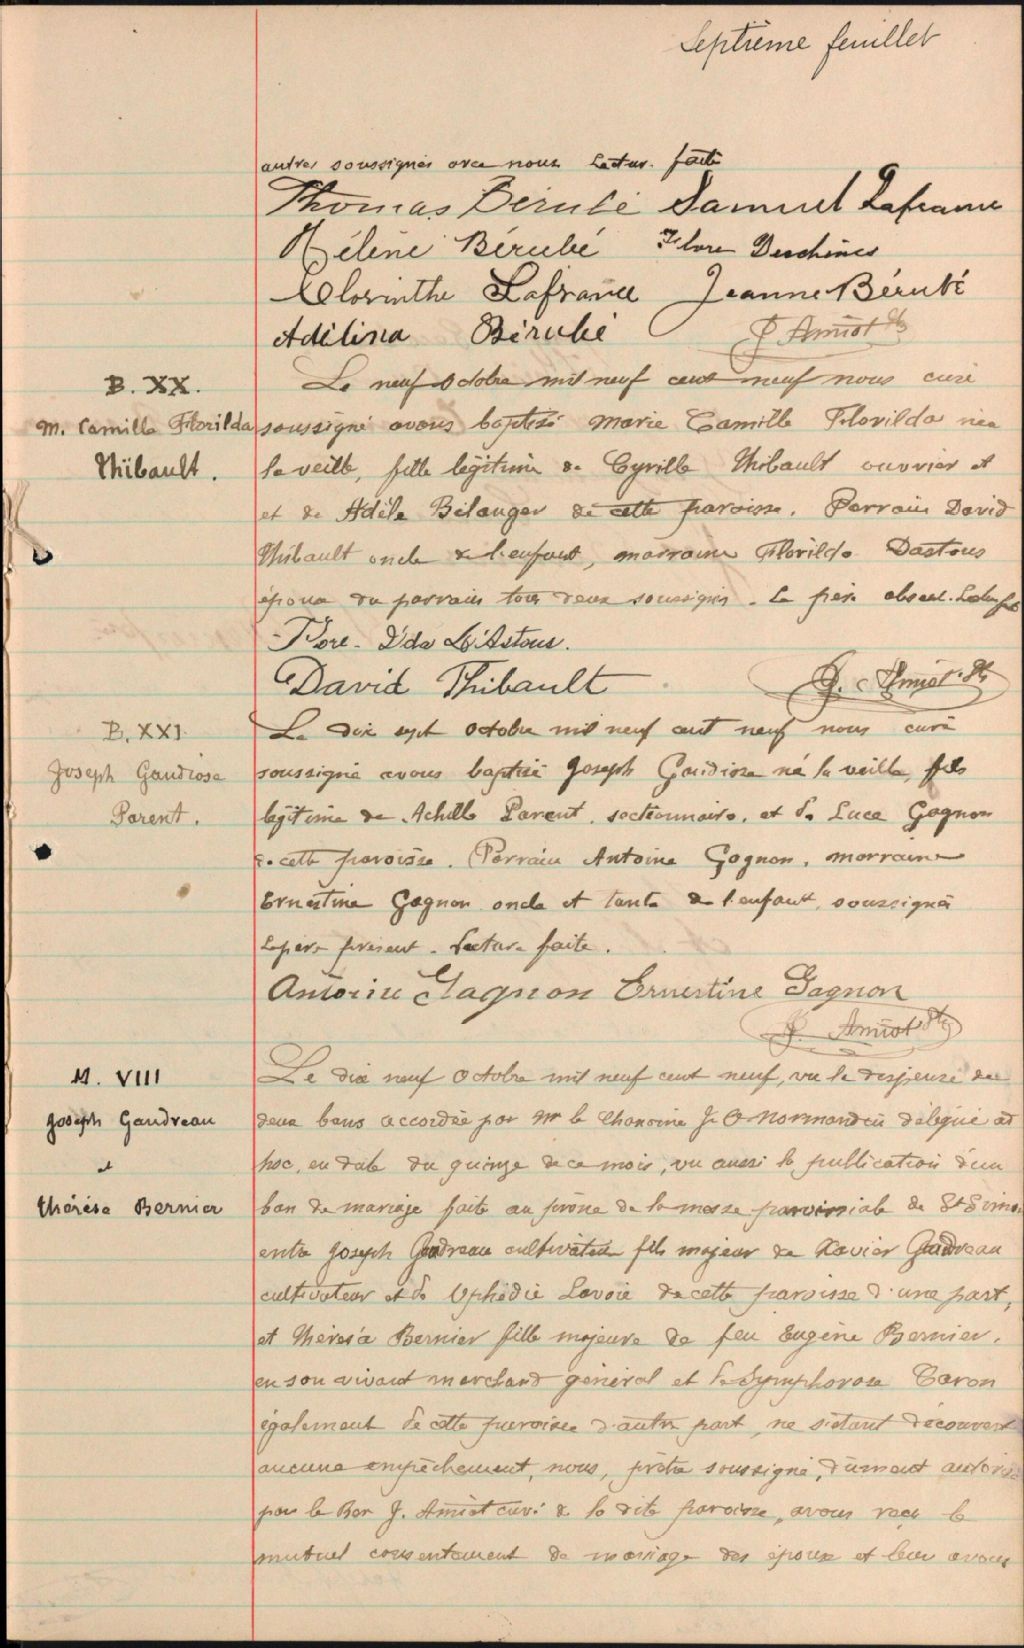 Septième feuillet
autres soussignés avec nous Lecture faite
Thomas Bérubé Samuel Lafrance
Hélène Bérubé Flore Deschènes
Clorinthe Lafrance Jeanne Bérubé
Adélina Bérubé J. Amiot Ptr
B. XX.
M. Camille Florilda
Thibault.
Le neuf Octobre mil neuf cent neuf nous curé
soussigné avons baptisé Marie Camille Florilda née
la veille, fille légitime de Cyrille Thibault ouvrier et
et de Adèle Bélanger de cette paroisse. Parrain David
Thibault oncle de l'enfant, marraine Florilda Dastous
épouse du parrain tous deux soussignés. Le père absent.
Flore-Ida D'Astous.
David Thibault J. Amiot Ptr
B. XXI
Joseph Gaudiose
Parent.
Le dix sept octobre mil neuf cent neuf nous curé
soussigné avons baptisé Joseph Gaudiose né la veille, fils
légitime de Achille Parent, sectionnaire, et de Luce Gagnon
de cette paroisse. Parrain Antoine Gagnon, marraine
Ernestine Gagnon oncle et tante de l'enfant, soussignés
Le père présent. Lecture faite.
Antoine Gagnon Ernestine Gagnon
J. Amiot Ptr
M. VIII
Joseph Gaudreau
et
Thérèse Bernier
Le dix neuf Octobre mil neuf cent neuf, vu la dispense de
deux bans accordée par Mr le Chanoine J. O Normandin délégué ad
hoc, en date du quinze de ce mois, vu aussi la publication d'un
ban de mariage faite au prône de la messe paroissiale de St Simon
entre Joseph Gaudreau cultivateur fils majeur de Xavier Gaudreau
cultivateur et de Lavoie de cette paroisse d'une part,
et Thérèse Bernier fille majeure de feu Eugène Bernier,
en son vivant marchand général et de Symphorose Caron
également de cette paroisse d'autre part, ne s'étant découvert
aucune empêchement, nous, prêtre soussigné, dûment autorisé
par le Rev J. Amiot curé de la dite paroisse, avons reçu le
mutuel consentement de mariage des époux et leur avons